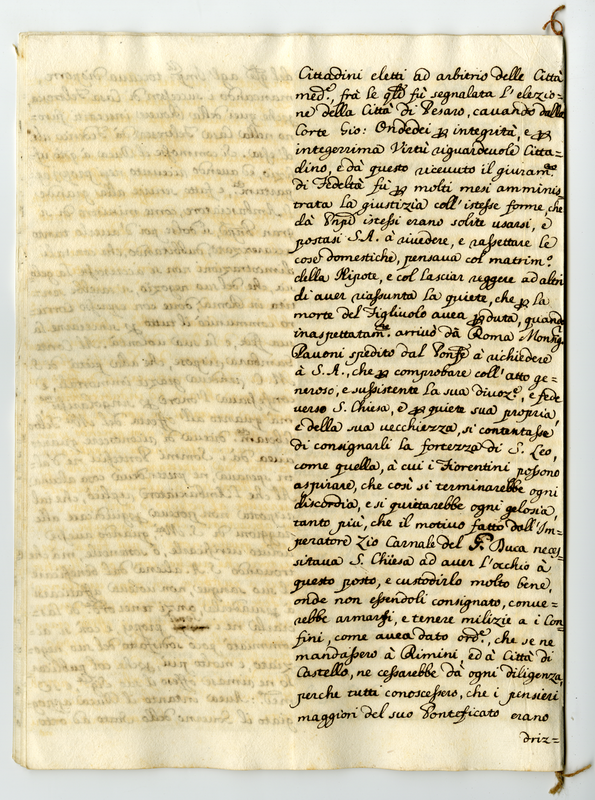 Cittadini eletti ad arbitrio delle Città
med.e, frà le q̃li fù segnalata l'elezio=
ne della Città di Pesaro, cavando dalla
Corte Gio: Ondedei ꝑ integrità, e ꝑ
integerrima Virtù riguardevole Citta=
dino, e dà questo ricevuto il giuram.to
di Fedeltà fù ꝑ molti mesi amminis
trata la giustizia coll'istesse forme, che
dà istessi erano solite usarsi, e
postasi S.A. à rivedere, e rassettare le
cose domestiche, pensava col matrim.o
della Nipote, e col lasciar reggere ad altri
di aver riassunta la quiete, che ꝑ la
morte del Figliuolo avea ꝑduta, quando
inaspettatam.te arrivò dà Roma Monsig.
Pavoni spedito dal Ponfe à richiedere
à S.A., che ꝑ comprobare coll'atto ge=
neroso, e sussistente la sua divoz.e, e fede
verso S. Chiesa, e ꝑ quiete sua propria,
e della sua vecchiezza, si contentasse
di consegnarli la fortezza di S. Leo,
come quella, à cui i Fiorentini possono
aspirare, che così si terminarebbe ogni
discordia, e si quittarebbe ogni gelosia,
tanto più, che il motivo fatto dall'Im=
peratore Zio Carnale del Duca neces
sitava S. Chiesa ad aver l'occhio à
questo posto, e custodirlo molto bene,
onde non essendoli consignato, conve=
rebbe armarsi, e tenere milizie a i Con
fini, come avea dato ord.e, che se ne
mandassero à Rimini, ed à Città di
Castello, ne cessarebbe dà ogni diligenza,
perche tutti conoscessero, che i pensieri
maggiori del suo Ponteficato erano
driz=